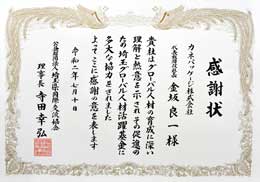 感謝状
カネパッケージ株式会社
代表取締役社長
金坂良一様
貴社はグローバル人材の育成に深い
理解と熱意を示されその促進の
ための埼玉グローバル人材活躍基金に
多大な協力をされました
よってここに感謝の意を表します
令和二年七月十日
公益財団法人埼玉県国際交流協会
理事長 寺田幸弘